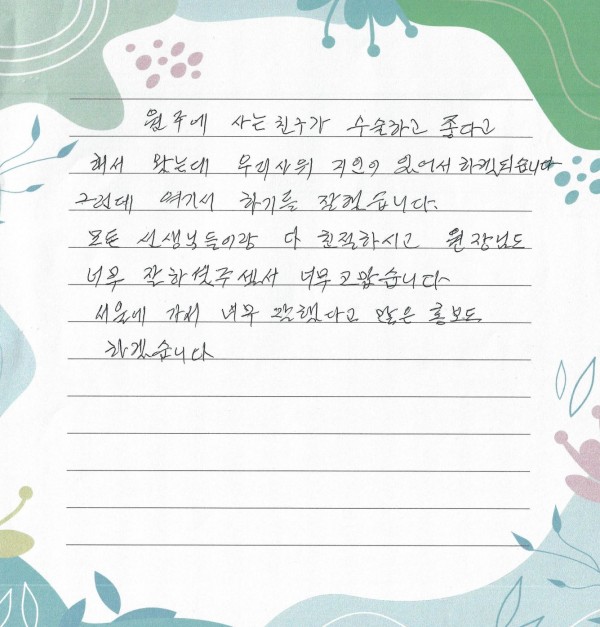 원주에 사는 친구가 수술하고 좋다고
해서 왔는데 우리사위 지인이 있어서 하게되습니다
그런데 여기서 하기를 잘했습니다.
모든 선생님들이랑 다 친절하시고 원장님도
너무 잘하셨주셔서 너무 고맙습니다
서울에 가서 너무 잘했다고 많은 홍보도
하겠습니다